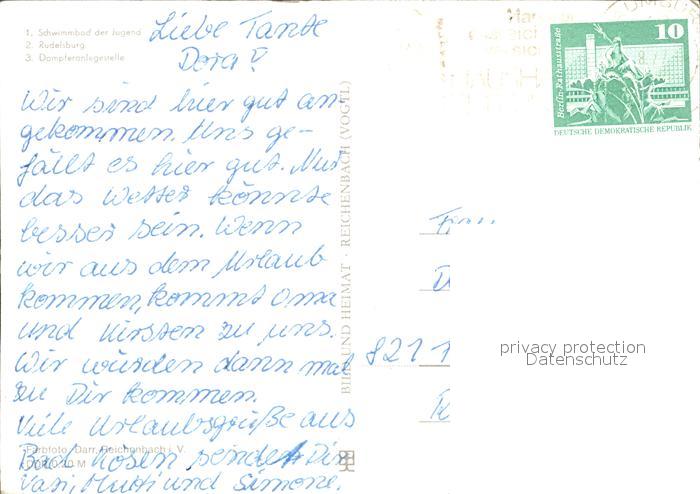 1. Schwimmbad der Jugend
2. Rudelsburg
3. Dampferanlegestelle
Liebe Tante
Dora!
Wir sind hier gut an-
gekommen. Uns ge-
fällt es hier gut. Nur
das Wetter könnte
besser sein. Wenn
wir aus dem Urlaub
kommen, kommt Oma
und Kirsten zu uns.
Wir würden dann mal
zu Dir kommen.
Viele Urlaubsgrüße aus
Bad Kösen senden Dir
Vati, Mutti und Simone.
Farbfoto: Darr, Reichenbach i. V.
BILD UND HEIMAT · REICHENBACH (VOGTL)
Berlin-Rathausstraße
10
DEUTSCHE DEMOKRATISCHE REPUBLIK
Frau
D
8211
K
privacy protection
Datenschutz